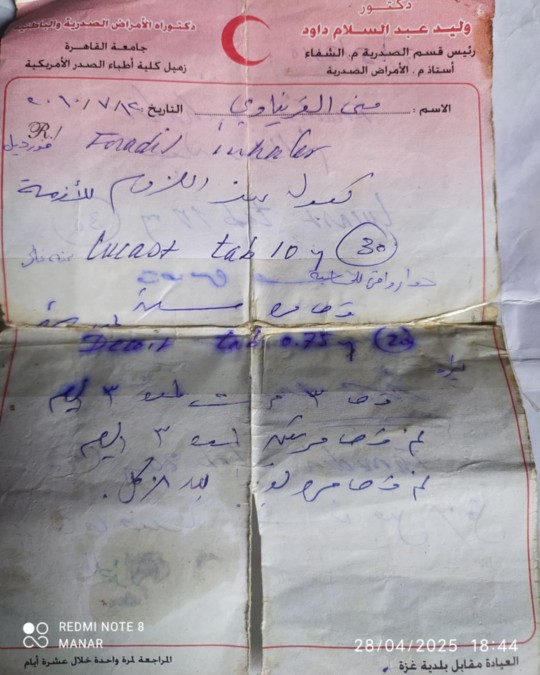 دكتور
وليد عبد السلام داود
رئيس قسم الصدرية م. الشفاء
أستاذ م. الأمراض الصدرية
دكتوراه الأمراض الصدرية والباطنية
جامعة القاهرة
زميل كلية أطباء الصدر الأمريكية
الاسم: منى القريناوي التاريخ: ٢٠١٠/٧/١٢
R/
Foradil inhaler فورديل
كبسولة عند اللزوم للأزمة
Lucast tab 10 mg (30)
قرص مساء
tab 0.75 mg (20)
قرص ٣ مرات لمدة ٣ أيام
ثم قرص مرتين لمدة ٣ أيام
ثم قرص مرة يوميا بعد الأكل.
REDMI NOTE 8
MANAR
28/04/2025 18:44
العيادة مقابل بلدية غزة
المراجعة لمرة واحدة خلال عشرة أيام